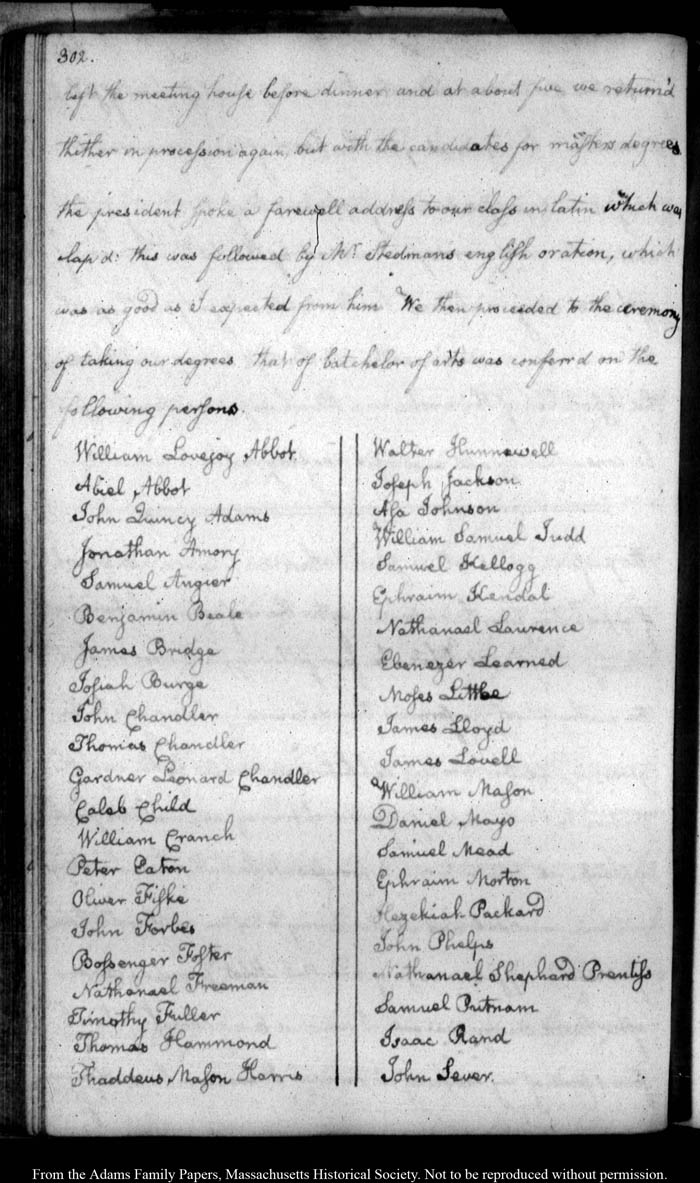 302.
left the meeting house before dinner and at about five we return'd
thither in procession again, but with the candidates for masters degrees
the president spoke a farewell address to our class in latin which was
clap'd: this was followed by Mr. Stedmans english oration, which
was as good as I expected from him We then proceeded to the ceremony
of taking our degrees that of batchelor of arts was conferrd on the
following persons.
William Lovejoy Abbot
Abiel Abbot
John Quincy Adams
Jonathan Amory
Samuel Angier
Benjamin Beale
James Bridge
Josiah Burge
John Chandler
Thomas Chandler
Gardner Leonard Chandler
Caleb Child
William Cranch
Peter Eaton
Oliver Fiske
John Forbes
Bossenger Foster
Nathanael Freeman
Timothy Fuller
Thomas Hammond
Thaddeus Mason Harris
Walter Hunnewell
Joseph Jackson
Asa Johnson
William Samuel Judd
Samuel Kellogg
Ephraim Kendal
Nathanael Laurence
Ebenezer Learned
Moses Little
James Lloyd
James Lovell
William Mason
Daniel Mayo
Samuel Mead
Ephraim Morton
Hezekiah Packard
John Phelps
Nathanael Shephard Prentiss
Samuel Putnam
Isaac Rand
John Sever.
From the Adams Family Papers, Massachusetts Historical Society. Not to be reproduced without permission.